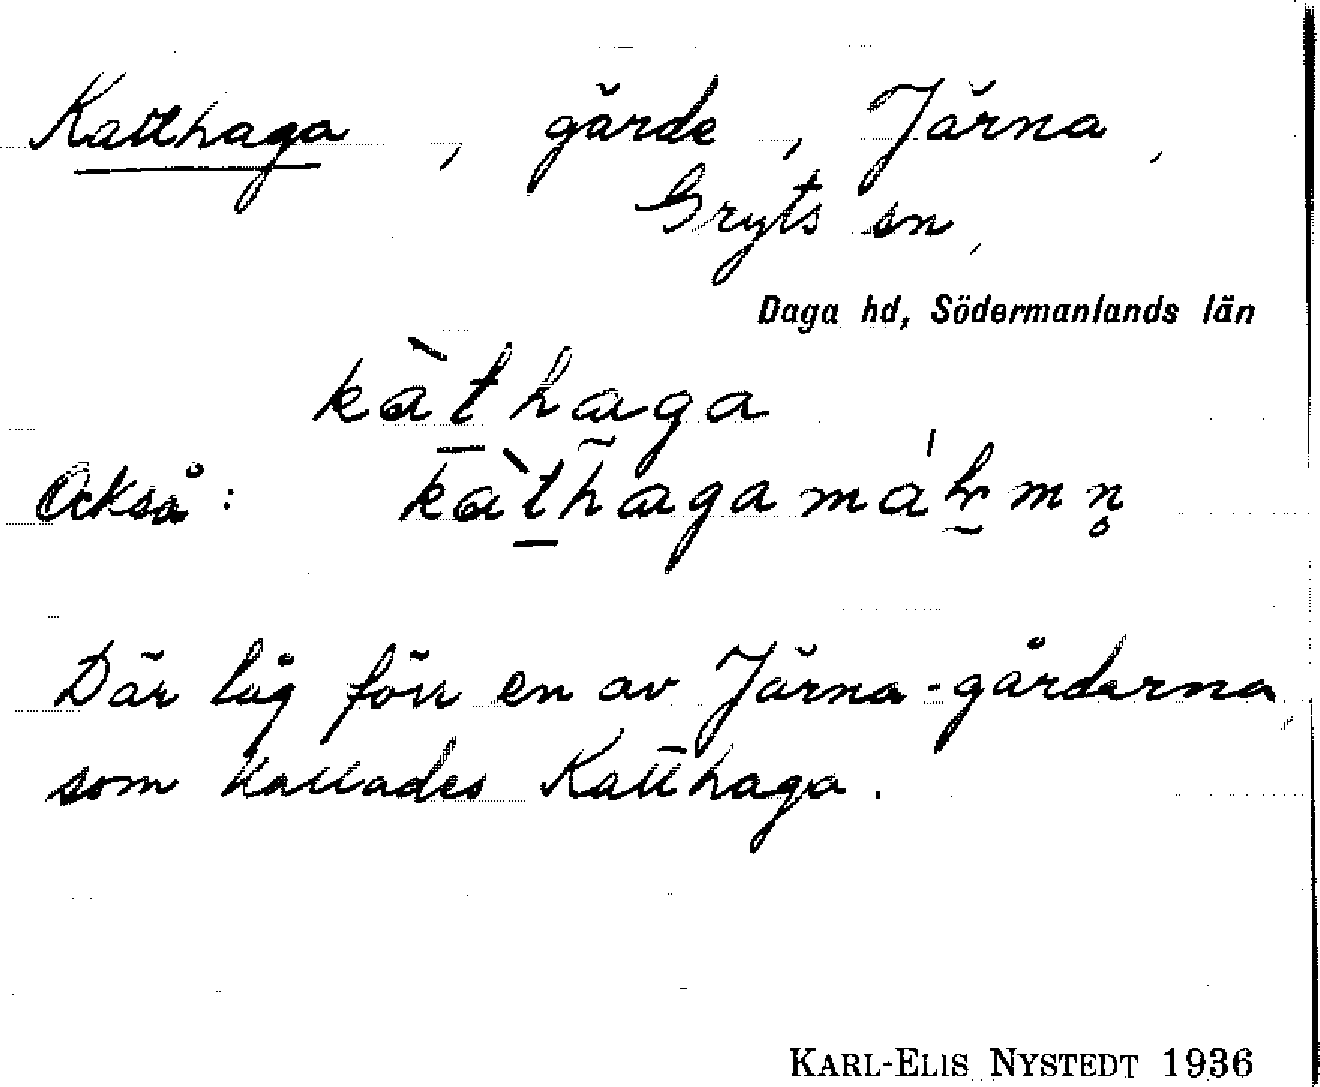 Katthaga, gärde, Järna,
Gryts sn,
Daga hd, Södermanlands län
kàthaga
Också: kàthagamáʀmn̥
Där låg förr en av Järna-gårdarna,
som kallades Katthaga.
KARL-ELIS NYSTEDT 1936